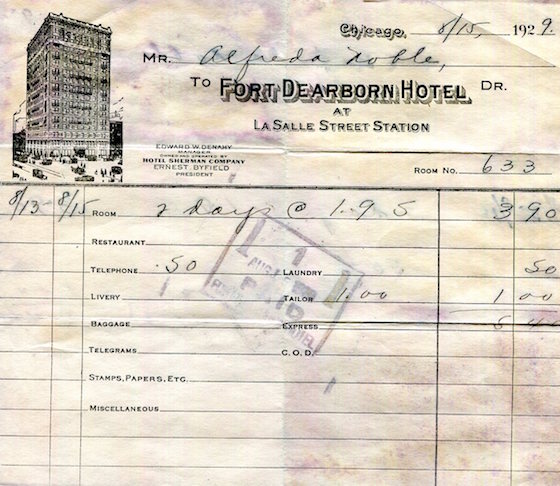 Chicago, 8/15, 1929.
MR. Alfreda Noble,
TO FORT DEARBORN HOTEL DR.
AT
LA SALLE STREET STATION
EDWARD W. DENAHY
MANAGER
OWNED AND OPERATED BY
HOTEL SHERMAN COMPANY
ERNEST BYFIELD
PRESIDENT
ROOM NO. 633
8/13 - 8/15 ROOM 2 days @ 1.95 3 90
RESTAURANT
TELEPHONE .50 LAUNDRY 50
LIVERY TAILOR 1.00 1 00
BAGGAGE EXPRESS 5 4
TELEGRAMS C.O.D.
STAMPS, PAPERS, ETC.
MISCELLANEOUS
1
PAID